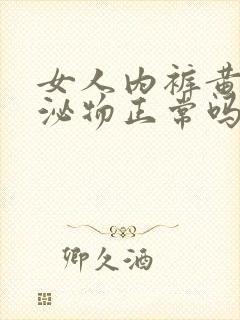 女人内裤黄
泌物正常吗
卿久酒